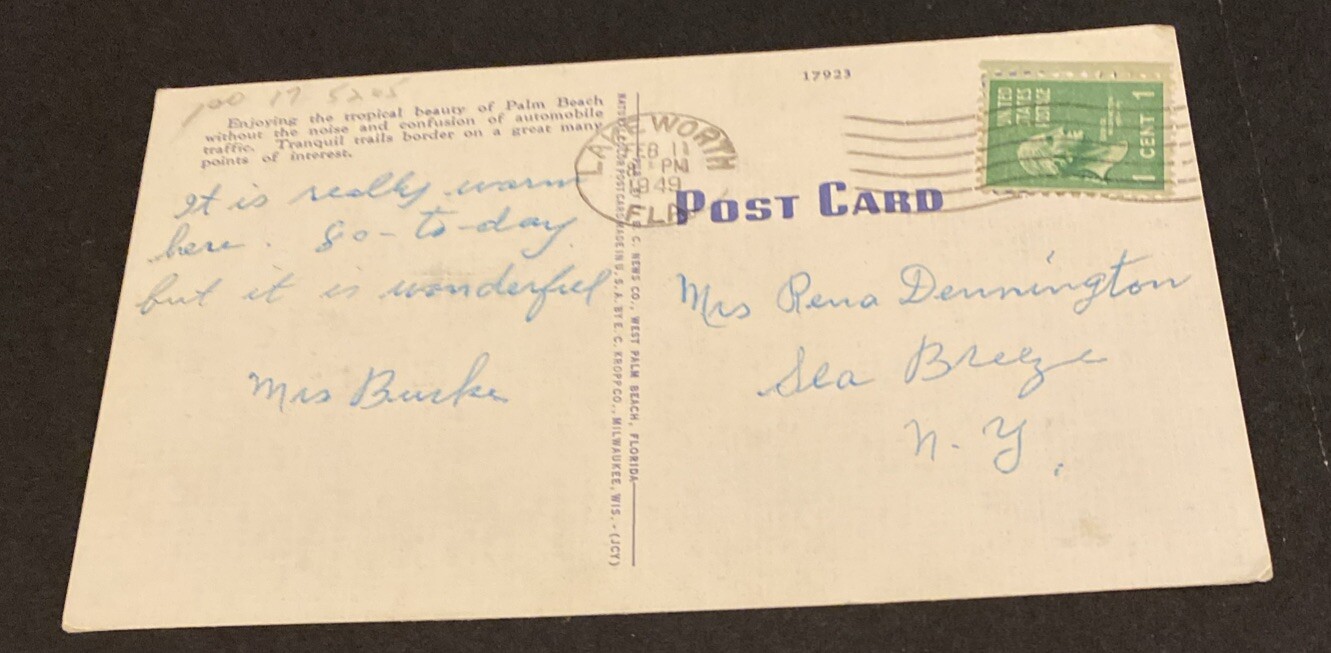 Enjoying the tropical beauty of Palm Beach
without the noise and confusion of automobile
traffic. Tranquil trails border on a great many
points of interest.
It is really warm
here. 80-to-day
but it is wonderful
Mrs Burke
C. NEWS CO., WEST PALM BEACH, FLORIDA
POSTCARD MADE IN U.S.A. BY E. C. KROPP CO., MILWAUKEE, WIS. - (JCY)
LAKE WORTH
FEB 11
PM
1949
FLA
17923
POST CARD
UNITED
STATES
POSTAGE
1 CENT 1
Mrs Rena Dennington
Sea Breeze
N.Y.